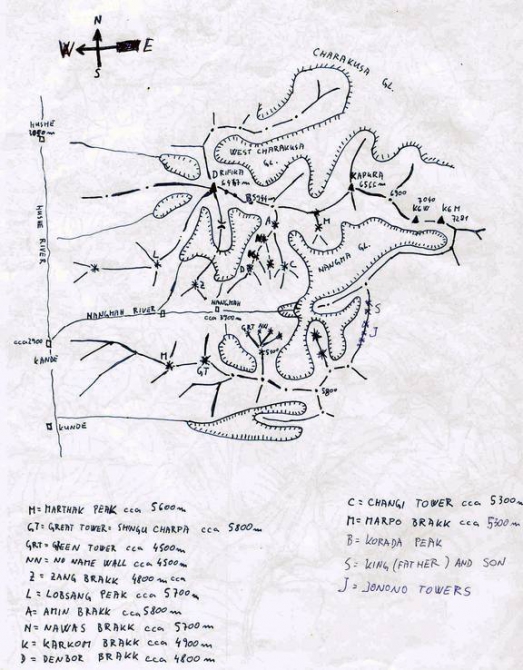 N
W E
S
CHARAKUSA
GL.
HUSHE
WEST CHARAKUSA
GL.
DRIFIKA
6447m
KAPURA
6544m
HUSHE RIVER
A
M
K6W
K6M
7281
L
D
C
NANGMA GL.
Z
NANGMAH
cca 3900m
NANGMAH RIVER
S
J
cca 2900
KANDE
GRT NN
M
GT
5800
KUNDE
M = MARTHAK PEAK cca 5600m
GT = GREAT TOWER = SHINGU CHARPA cca 5800m
GRT = GREEN TOWER cca 4500m
NN = NO NAME WALL cca 4500m
Z = ZANG BRAKK 4800m cca
L = LOBSANG PEAK cca 5700m
A = AMIN BRAKK cca 5800m
N = NAWAS BRAKK cca 5700m
K = KARKOM BRAKK cca 4900m
D = DENBOR BRAKK cca 4800m
C = CHANGI TOWER cca 5300m
M = MARPO BRAKK cca 5300m
B = KORADA PEAK
S = KING (FATHER) AND SON
J = JONONO TOWERS